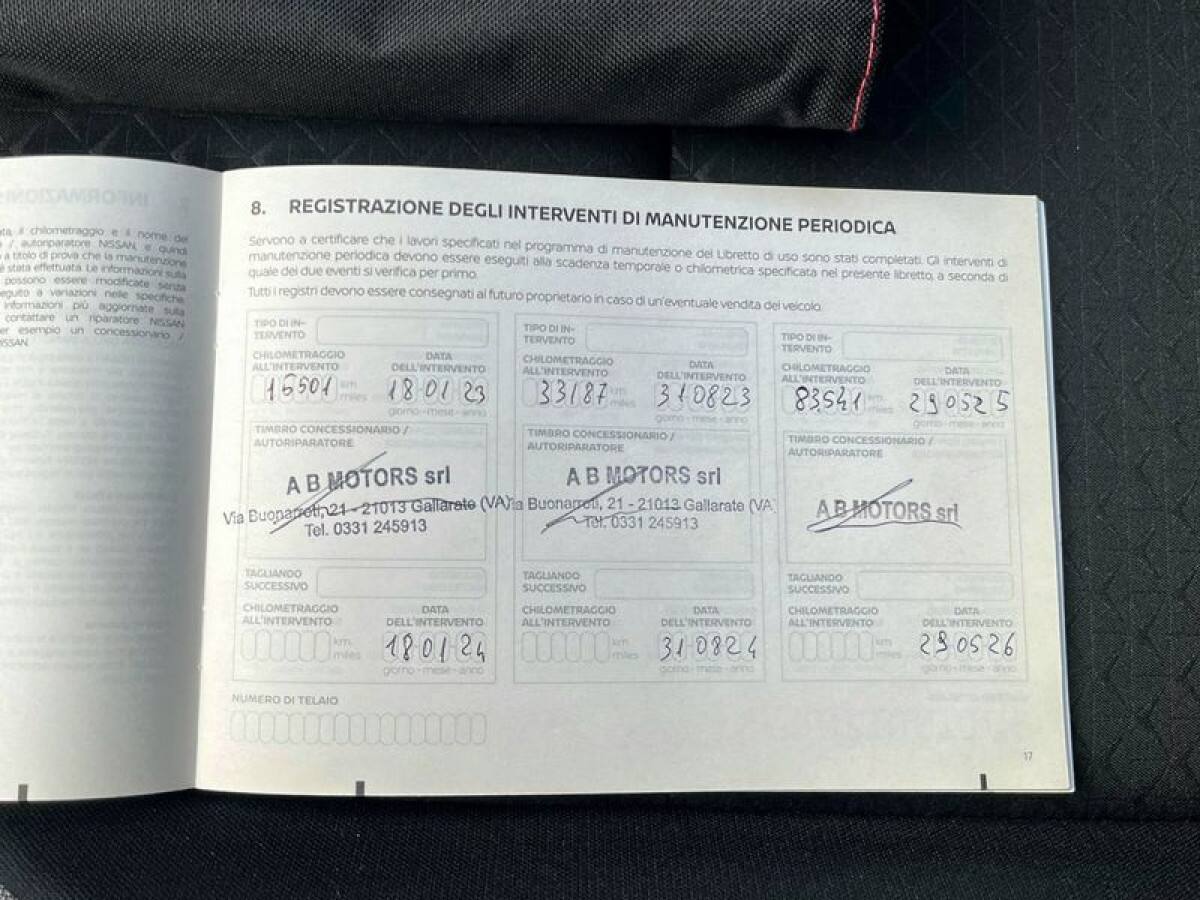 ta, il chilometraggio e il nome del
/ autoriparatore NISSAN, e quindi
a titolo di prova che la manutenzione
stata effettuata. Le informazioni sulla
possono essere modificate senza
eguito a variazioni nelle specifiche.
informazioni più aggiornate sulla
contattare un riparatore NISSAN
er esempio un concessionario /
ISSAN.
8. REGISTRAZIONE DEGLI INTERVENTI DI MANUTENZIONE PERIODICA
Servono a certificare che i lavori specificati nel programma di manutenzione del Libretto di uso sono stati completati. Gli interventi di
manutenzione periodica devono essere eseguiti alla scadenza temporale o chilometrica specificata nel presente libretto, a seconda di
quale dei due eventi si verifica per primo.
Tutti i registri devono essere consegnati al futuro proprietario in caso di un'eventuale vendita del veicolo.
TIPO DI IN-
TERVENTO
CHILOMETRAGGIO
ALL'INTERVENTO
DATA
DELL'INTERVENTO
16501 km
miles
18 01 23
giorno - mese - anno
TIMBRO CONCESSIONARIO /
AUTORIPARATORE
A B MOTORS srl
Via Buonarroti, 21 - 21013 Gallarate (VA)
Tel. 0331 245913
TAGLIANDO
SUCCESSIVO
CHILOMETRAGGIO
ALL'INTERVENTO
DATA
DELL'INTERVENTO
km
miles
18 01 24
giorno - mese - anno
TIPO DI IN-
TERVENTO
CHILOMETRAGGIO
ALL'INTERVENTO
DATA
DELL'INTERVENTO
33187 km
miles
31 08 23
giorno - mese - anno
TIMBRO CONCESSIONARIO /
AUTORIPARATORE
A B MOTORS srl
Via Buonarroti, 21 - 21013 Gallarate (VA
Tel. 0331 245913
TAGLIANDO
SUCCESSIVO
CHILOMETRAGGIO
ALL'INTERVENTO
DATA
DELL'INTERVENTO
km
miles
31 08 24
giorno - mese - anno
TIPO DI IN-
TERVENTO
CHILOMETRAGGIO
ALL'INTERVENTO
DATA
DELL'INTERVENTO
83541 km
miles
29 05 25
giorno - mese - anno
TIMBRO CONCESSIONARIO /
AUTORIPARATORE
A B MOTORS srl
TAGLIANDO
SUCCESSIVO
CHILOMETRAGGIO
ALL'INTERVENTO
DATA
DELL'INTERVENTO
km
miles
29 05 26
giorno - mese - anno
NUMERO DI TELAIO
17